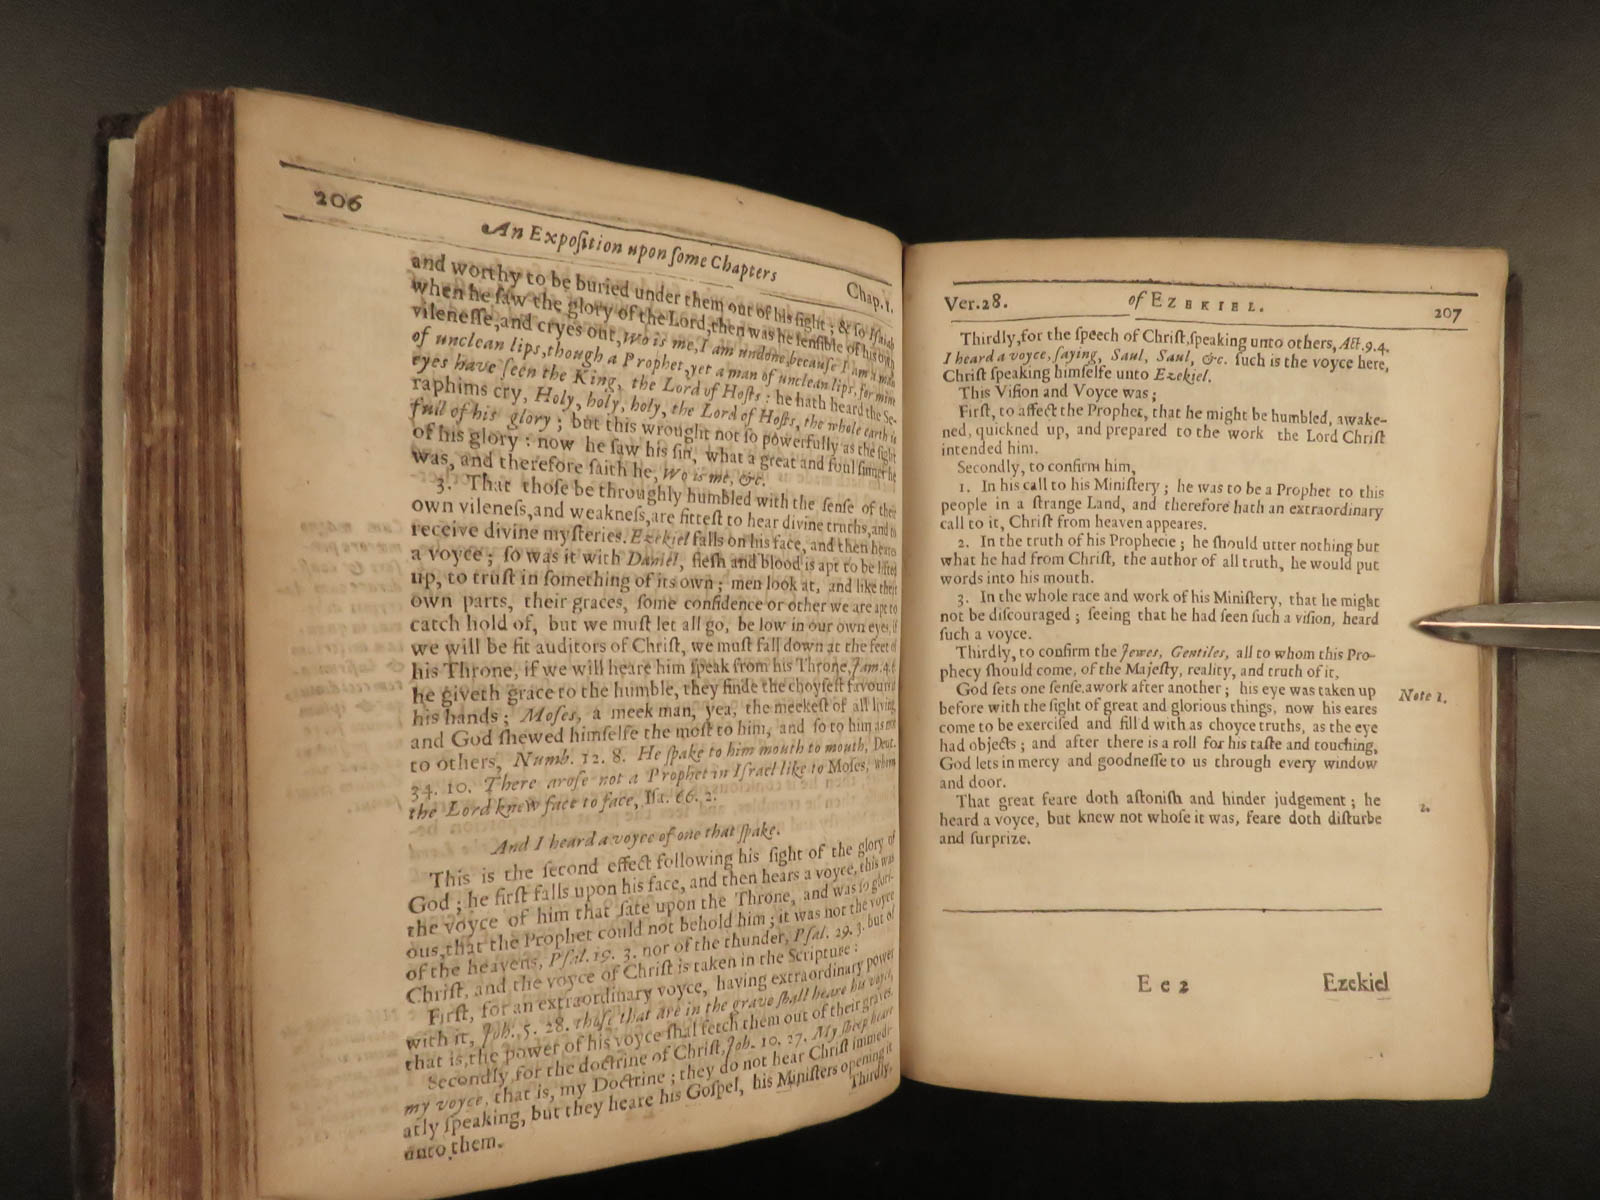 206
An Expoſition upon ſome Chapters
Chap. 1.
and worthy to be buried under them out of his ſight; & ſo Iſaiah
when he ſaw the glory of the Lord, then was he ſenſible of his own
vileneſſe, and cryes out, Wo is me, I am undone, becauſe I am a man
of unclean lips, though a Prophet, yet a man of unclean lips, for mine
eyes have ſeen the King, the Lord of Hoſts: he hath heard the Se-
raphims cry, Holy, holy, holy, the Lord of Hoſts, the whole earth is
full of his glory; but this wrought not ſo powerfully as the ſight
of his glory: now he ſaw his ſin, what a great and foul ſinner he
was, and therefore ſaith he, Wo is me, &c.
3. That thoſe be throughly humbled with the ſenſe of their
own vileneſs, and weakneſs, are fitteſt to hear divine truths, and to
receive divine myſteries. Ezekiel falls on his face, and then heares
a voyce; ſo was it with Daniel, fleſh and blood is apt to be lifted
up, to truſt in ſomething of its own; men look at, and like their
own parts, their graces, ſome confidence or other we are apt to
catch hold of, but we muſt let all go, be low in our own eyes, if
we will be fit auditors of Chriſt, we muſt fall down at the feet of
his Throne, if we will heare him ſpeak from his Throne, Jam. 4.6
he giveth grace to the humble, they finde the choyſeſt favour at
his hands; Moſes, a meek man, yea, the meekeſt of all living
and God ſhewed himſelfe the moſt to him, and ſo to him as not
to others, Numb. 12. 8. He ſpake to him mouth to mouth, Deut.
34. 10. There aroſe not a Prophet in Iſrael like to Moſes, whom
the Lord knew face to face, Iſa. 66. 2.
And I heard a voyce of one that ſpake.
This is the ſecond effect following his ſight of the glory of
God; he firſt falls upon his face, and then hears a voyce, this was
the voyce of him that ſate upon the Throne, and was ſo glori-
ous, that the Prophet could not behold him; it was not the voyce
of the heavens, Pſal. 19. 3. nor of the thunder, Pſal. 29. 3. but of
Chriſt, and the voyce of Chriſt is taken in the Scripture:
Firſt, for an extraordinary voyce, having extraordinary power
with it, Joh. 5. 28. thoſe that are in the grave ſhall heare his voyce,
that is, the power of his voyce ſhal fetch them out of their graves.
Secondly, for the doctrine of Chriſt, Joh. 10. 27. My ſheep heare
my voyce, that is, my Doctrine; they do not hear Chriſt immedi-
atly ſpeaking, but they heare his Goſpel, his Miniſters opening it
unto them.
Thirdly,
Ver. 28.
of EZEKIEL.
207
Thirdly, for the ſpeech of Chriſt, ſpeaking unto others, Act. 9. 4.
I heard a voyce, ſaying, Saul, Saul, &c. ſuch is the voyce here,
Chriſt ſpeaking himſelfe unto Ezekiel.
This Viſion and Voyce was;
Firſt, to affect the Prophet, that he might be humbled, awake-
ned, quickned up, and prepared to the work the Lord Chriſt
intended him.
Secondly, to confirm him,
1. In his call to his Miniſtery; he was to be a Prophet to this
people in a ſtrange Land, and therefore hath an extraordinary
call to it, Chriſt from heaven appeares.
2. In the truth of his Prophecie; he ſhould utter nothing but
what he had from Chriſt, the author of all truth, he would put
words into his mouth.
3. In the whole race and work of his Miniſtery, that he might
not be diſcouraged; ſeeing that he had ſeen ſuch a viſion, heard
ſuch a voyce.
Thirdly, to confirm the Jewes, Gentiles, all to whom this Pro-
phecy ſhould come, of the Majeſty, reality, and truth of it,
God ſets one ſenſe awork after another; his eye was taken up
before with the ſight of great and glorious things, now his eares
come to be exerciſed and fill'd with as choyce truths, as the eye
had objects; and after there is a roll for his taſte and touching,
God lets in mercy and goodneſſe to us through every window
and door.
Note 1.
That great feare doth aſtoniſh and hinder judgement; he
heard a voyce, but knew not whoſe it was, feare doth diſturbe
and ſurprize.
2.
Ee2
Ezekiel